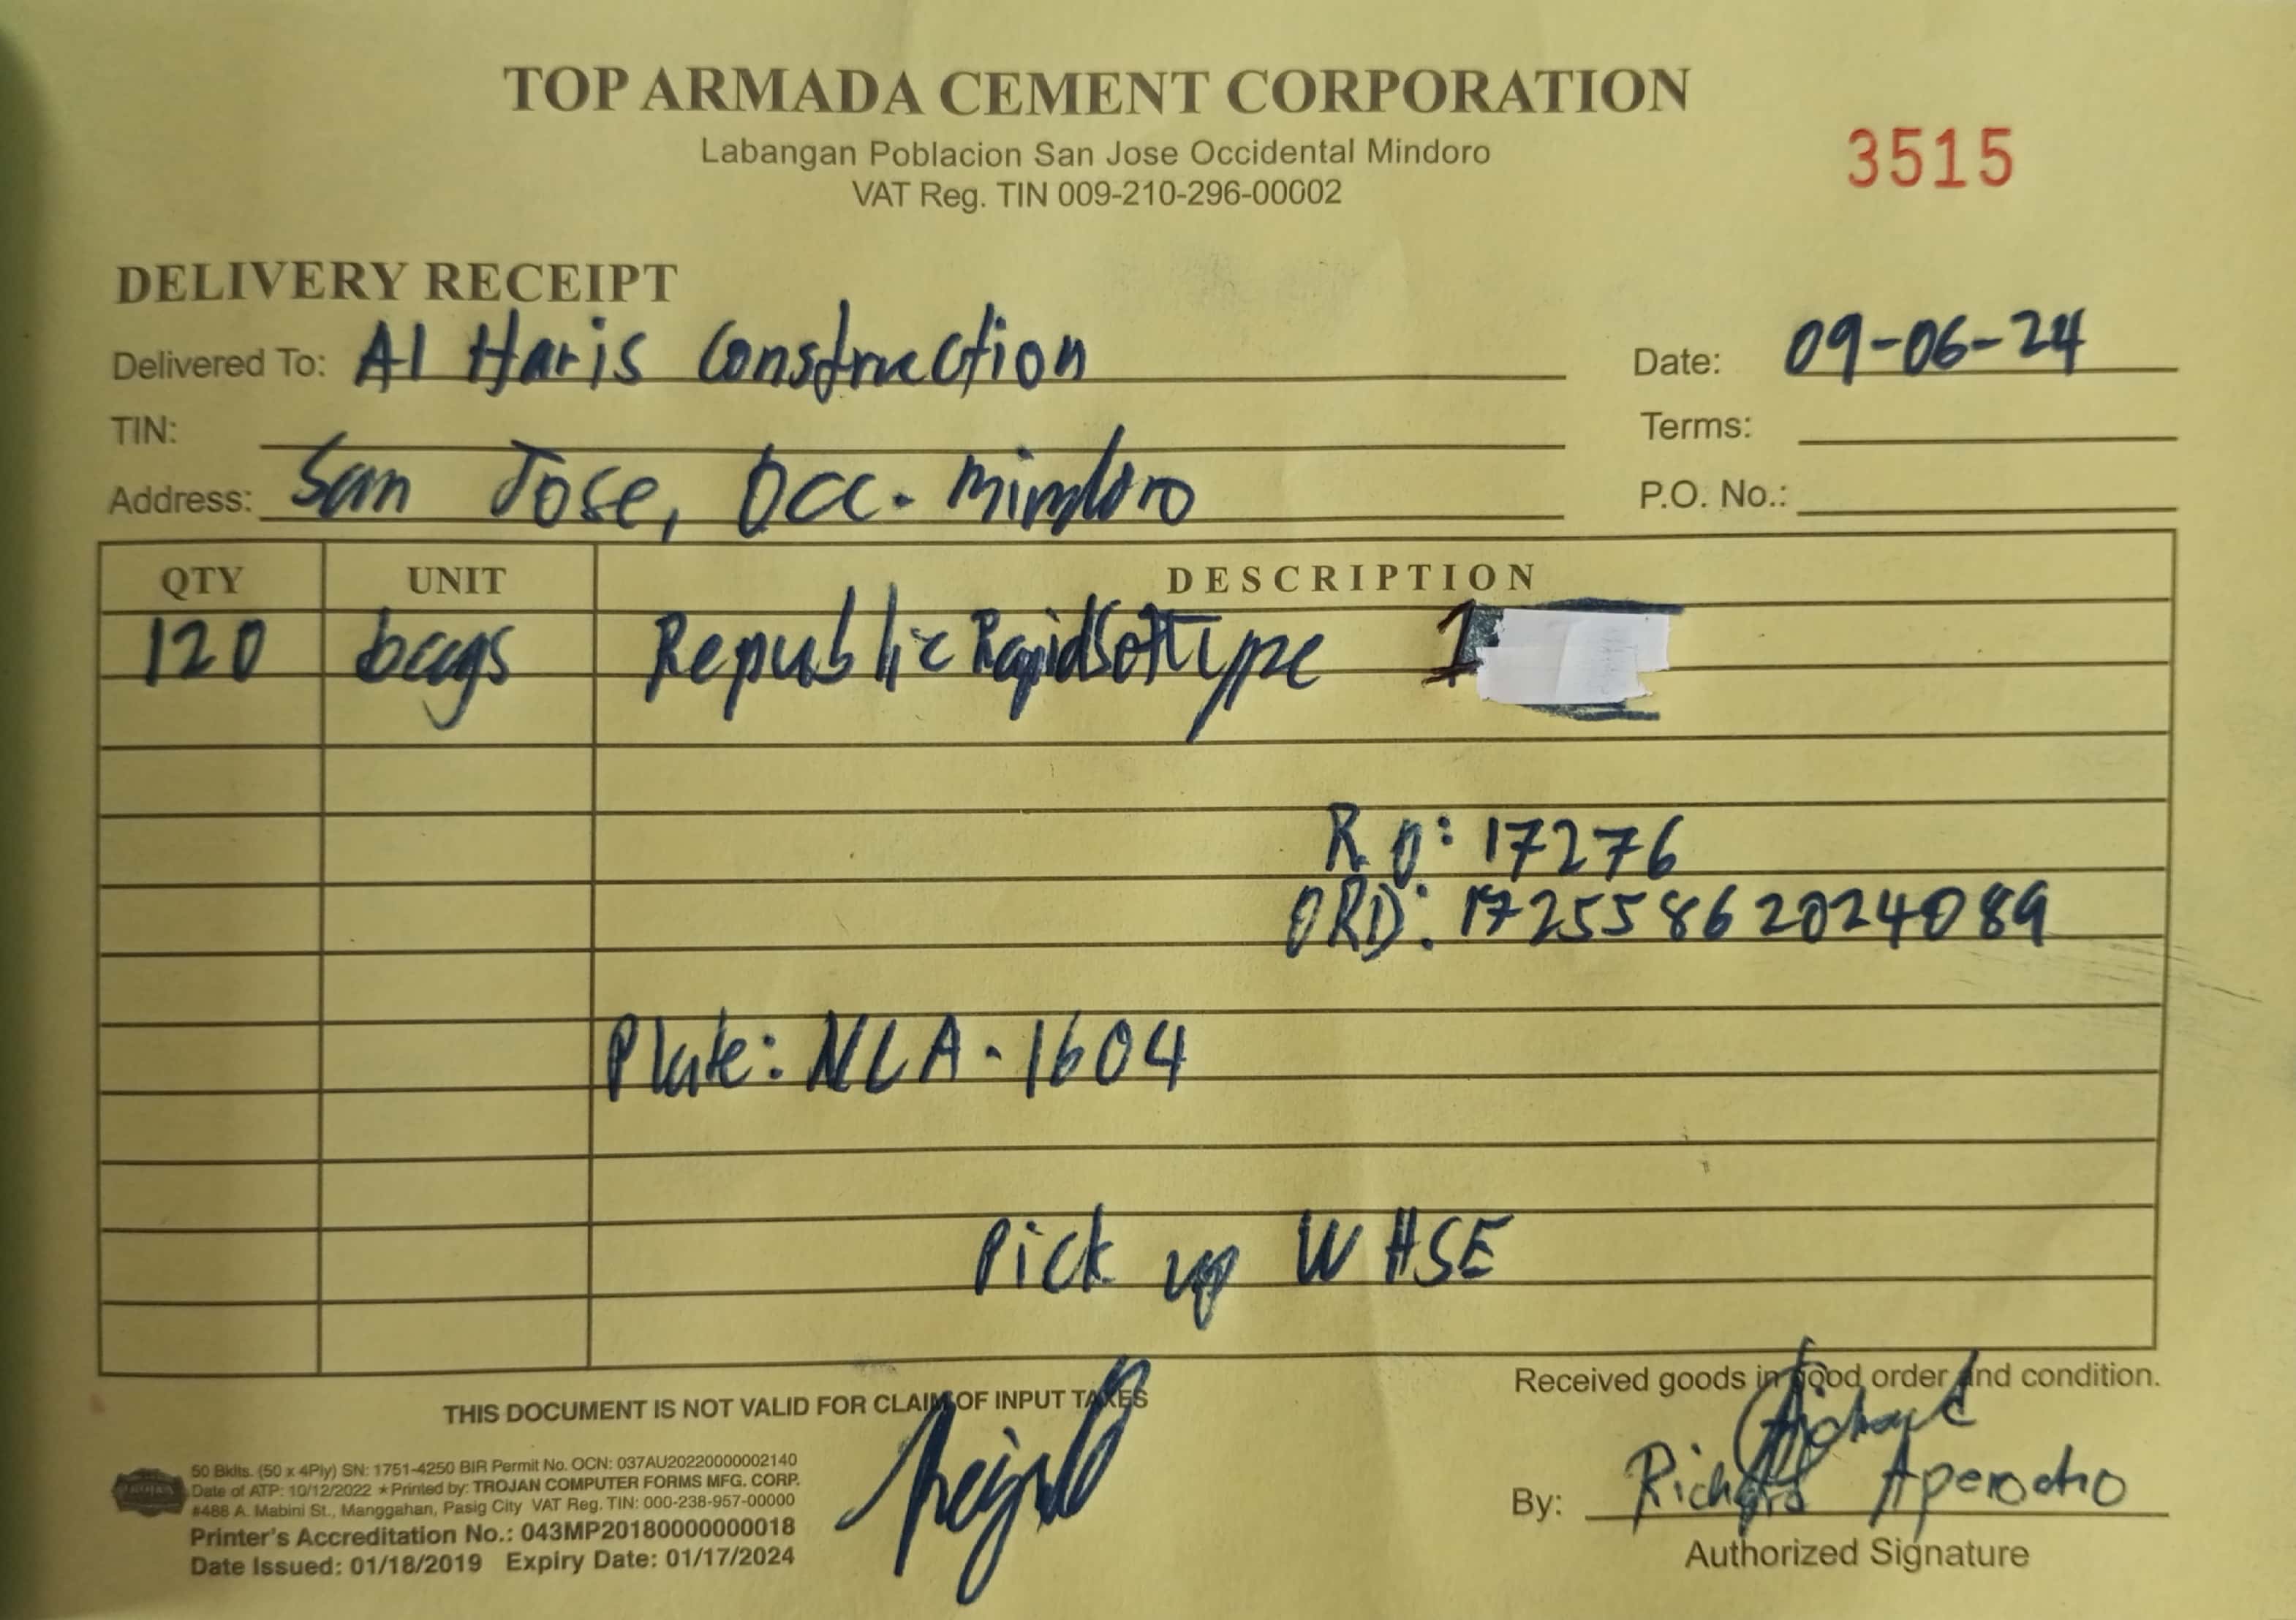 TOP ARMADA CEMENT CORPORATION
Labangan Poblacion San Jose Occidental Mindoro
VAT Reg. TIN 009-210-296-00002
3515
DELIVERY RECEIPT
Delivered To: Al Haris Construction
Date: 09-06-24
TIN:
Terms:
Address: San Jose, Occ. Mindoro
P.O. No.:
QTY UNIT DESCRIPTION
120 bags Republic Rapidset Type 1
R.O: 17276
ORD: 17255862024089
Plate: NLA-1604
Pick up WHSE
Received goods in good order and condition.
THIS DOCUMENT IS NOT VALID FOR CLAIM OF INPUT TAXES
50 Bklts. (50 x 4Ply) SN: 1751-4250 BIR Permit No. OCN: 037AU20220000002140
Date of ATP: 10/12/2022 ★Printed by: TROJAN COMPUTER FORMS MFG. CORP.
#486 A. Mabini St., Manggahan, Pasig City VAT Reg. TIN: 000-238-957-00000
Printer's Accreditation No.: 043MP20180000000018
Date Issued: 01/18/2019 Expiry Date: 01/17/2024
By: Richard Aperocho
Authorized Signature